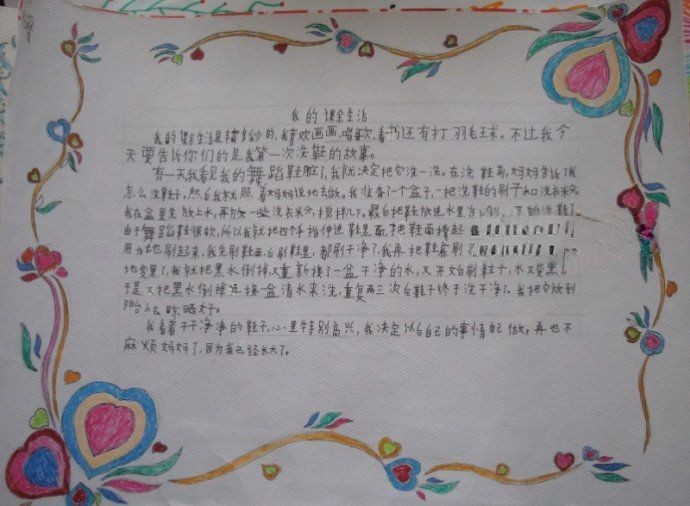 我的课余生活
我的课余生活是精多妙的，我喜欢画画，唱歌，看书还有打羽毛球。不过我今
天要告诉你们的是我第一次洗鞋的故事。
有一天我看见我的舞蹈鞋脏了，我就决定把它洗一洗。在洗鞋前，妈妈告诉了我
怎么洗鞋子，然后我就照着妈妈说地去做。我准备了一个盆子，一把洗鞋的刷子和洗衣粉
我在盆里先放上水，再放一些洗衣粉，搅拌几下。最后把鞋放进水里
由于舞蹈鞋很软，所以我就把四个手指伸进鞋里面，把鞋面撑起
用力地刷起来，我先刷鞋面，后刷鞋里，都刷干净了，我再把鞋
地变黑了，我就把黑水倒掉又重新接了一盆干净的水，又开始刷鞋子，水又变黑了
于是又把黑水倒掉接一盆清水来洗，重复两三次后鞋子终于洗干净了。我把它放到
阳台上去晾晒好。
我看着干干净净的鞋子，心里特别高兴，我决定以后自己的事情自己做，再也不
麻烦妈妈了，因为我已经长大了。